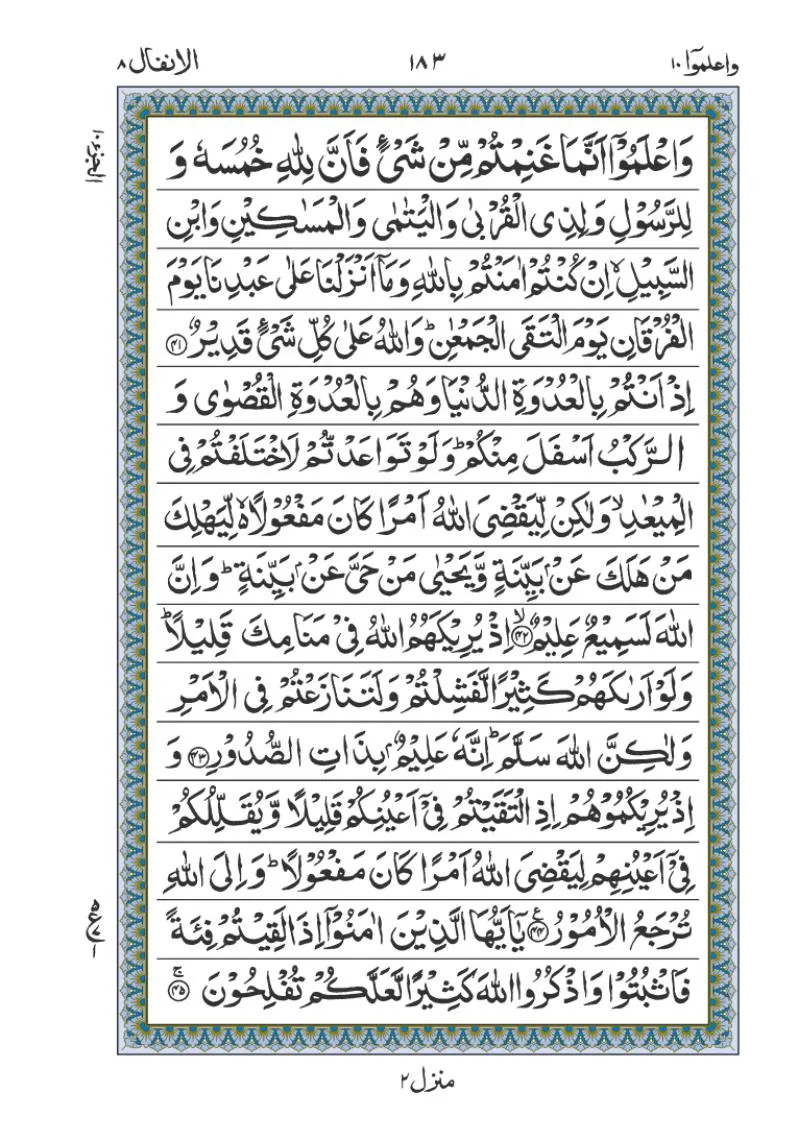 واعلموۤا ۱۰
۱۸۳
الانفال ۸
الجزء ۱۰
وَاعْلَمُوْۤا اَنَّمَا غَنِمْتُمْ مِّنْ شَیْءٍ فَاَنَّ لِلّٰهِ خُمُسَهٗ وَ
لِلرَّسُوْلِ وَلِذِی الْقُرْبٰی وَالْیَتٰمٰی وَالْمَسٰكِیْنِ وَابْنِ
السَّبِیْلِ ۙ اِنْ كُنْتُمْ اٰمَنْتُمْ بِاللّٰهِ وَمَاۤ اَنْزَلْنَا عَلٰی عَبْدِنَا یَوْمَ
الْفُرْقَانِ یَوْمَ الْتَقَی الْجَمْعٰنِ ؕ وَاللّٰهُ عَلٰی كُلِّ شَیْءٍ قَدِیْرٌ ۴۱
اِذْ اَنْتُمْ بِالْعُدْوَةِ الدُّنْیَا وَهُمْ بِالْعُدْوَةِ الْقُصْوٰی وَ
الرَّكْبُ اَسْفَلَ مِنْكُمْ ؕ وَلَوْ تَوَاعَدْتُّمْ لَاخْتَلَفْتُمْ فِی
الْمِیْعٰدِ ۙ وَلٰكِنْ لِّیَقْضِیَ اللّٰهُ اَمْرًا كَانَ مَفْعُوْلًا ۙ۬ لِّیَهْلِكَ
مَنْ هَلَكَ عَنْۢ بَیِّنَةٍ وَّیَحْیٰی مَنْ حَیَّ عَنْۢ بَیِّنَةٍ ؕ وَاِنَّ
اللّٰهَ لَسَمِیْعٌ عَلِیْمٌ ۙ ۴۲ اِذْ یُرِیْكَهُمُ اللّٰهُ فِیْ مَنَامِكَ قَلِیْلًا ؕ
وَلَوْ اَرٰىكَهُمْ كَثِیْرًا لَّفَشِلْتُمْ وَلَتَنَازَعْتُمْ فِی الْاَمْرِ
وَلٰكِنَّ اللّٰهَ سَلَّمَ ؕ اِنَّهٗ عَلِیْمٌۢ بِذَاتِ الصُّدُوْرِ ۴۳ وَ
اِذْ یُرِیْكُمُوْهُمْ اِذِ الْتَقَیْتُمْ فِیْۤ اَعْیُنِكُمْ قَلِیْلًا وَّیُقَلِّلُكُمْ
فِیْۤ اَعْیُنِهِمْ لِیَقْضِیَ اللّٰهُ اَمْرًا كَانَ مَفْعُوْلًا ؕ وَاِلَی اللّٰهِ
تُرْجَعُ الْاُمُوْرُ ۴۴ یٰۤاَیُّهَا الَّذِیْنَ اٰمَنُوْۤا اِذَا لَقِیْتُمْ فِئَةً
فَاثْبُتُوْا وَاذْكُرُوا اللّٰهَ كَثِیْرًا لَّعَلَّكُمْ تُفْلِحُوْنَ ۚ ۴۵
منزل ۲